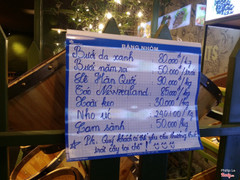 BẢNG NHÓM
Bưởi da xanh 80.000đ/kg
Bưởi năm roi 50.000đ/kg
Lê Hàn Quốc 90.000đ/kg
Táo Newzealand 85.000đ/kg
Xoài keo 30.000đ/kg
Nho Mỹ 240.000đ/kg
Cam sành 50.000đ/kg
Quý khách có thể yêu cầu thưởng thức trái cây tại chỗ!